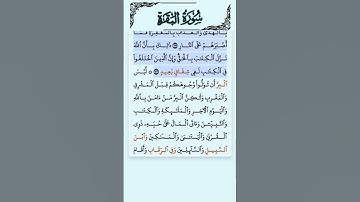 سُورَةُ الْبَقَرَةِ
بِالْهُدَىٰ وَالْعَذَابَ بِالْمَغْفِرَةِ فَمَا
أَصْبَرَهُمْ عَلَى النَّارِ ۝ ذَٰلِكَ بِأَنَّ اللَّهَ
نَزَّلَ الْكِتَابَ بِالْحَقِّ وَإِنَّ الَّذِينَ اخْتَلَفُوا
فِي الْكِتَابِ لَفِي شِقَاقٍ بَعِيدٍ ۝ لَّيْسَ
الْبِرَّ أَن تُوَلُّوا وُجُوهَكُمْ قِبَلَ الْمَشْرِقِ
وَالْمَغْرِبِ وَلَٰكِنَّ الْبِرَّ مَنْ ءَامَنَ بِاللَّهِ
وَالْيَوْمِ الْآخِرِ وَالْمَلَائِكَةِ وَالْكِتَابِ
وَالنَّبِيِّينَ وَءَاتَى الْمَالَ عَلَىٰ حُبِّهِ ذَوِي
الْقُرْبَىٰ وَالْيَتَامَىٰ وَالْمَسَاكِينَ وَابْنَ
السَّبِيلِ وَالسَّائِلِينَ وَفِي الرِّقَابِ وَأَقَامَ